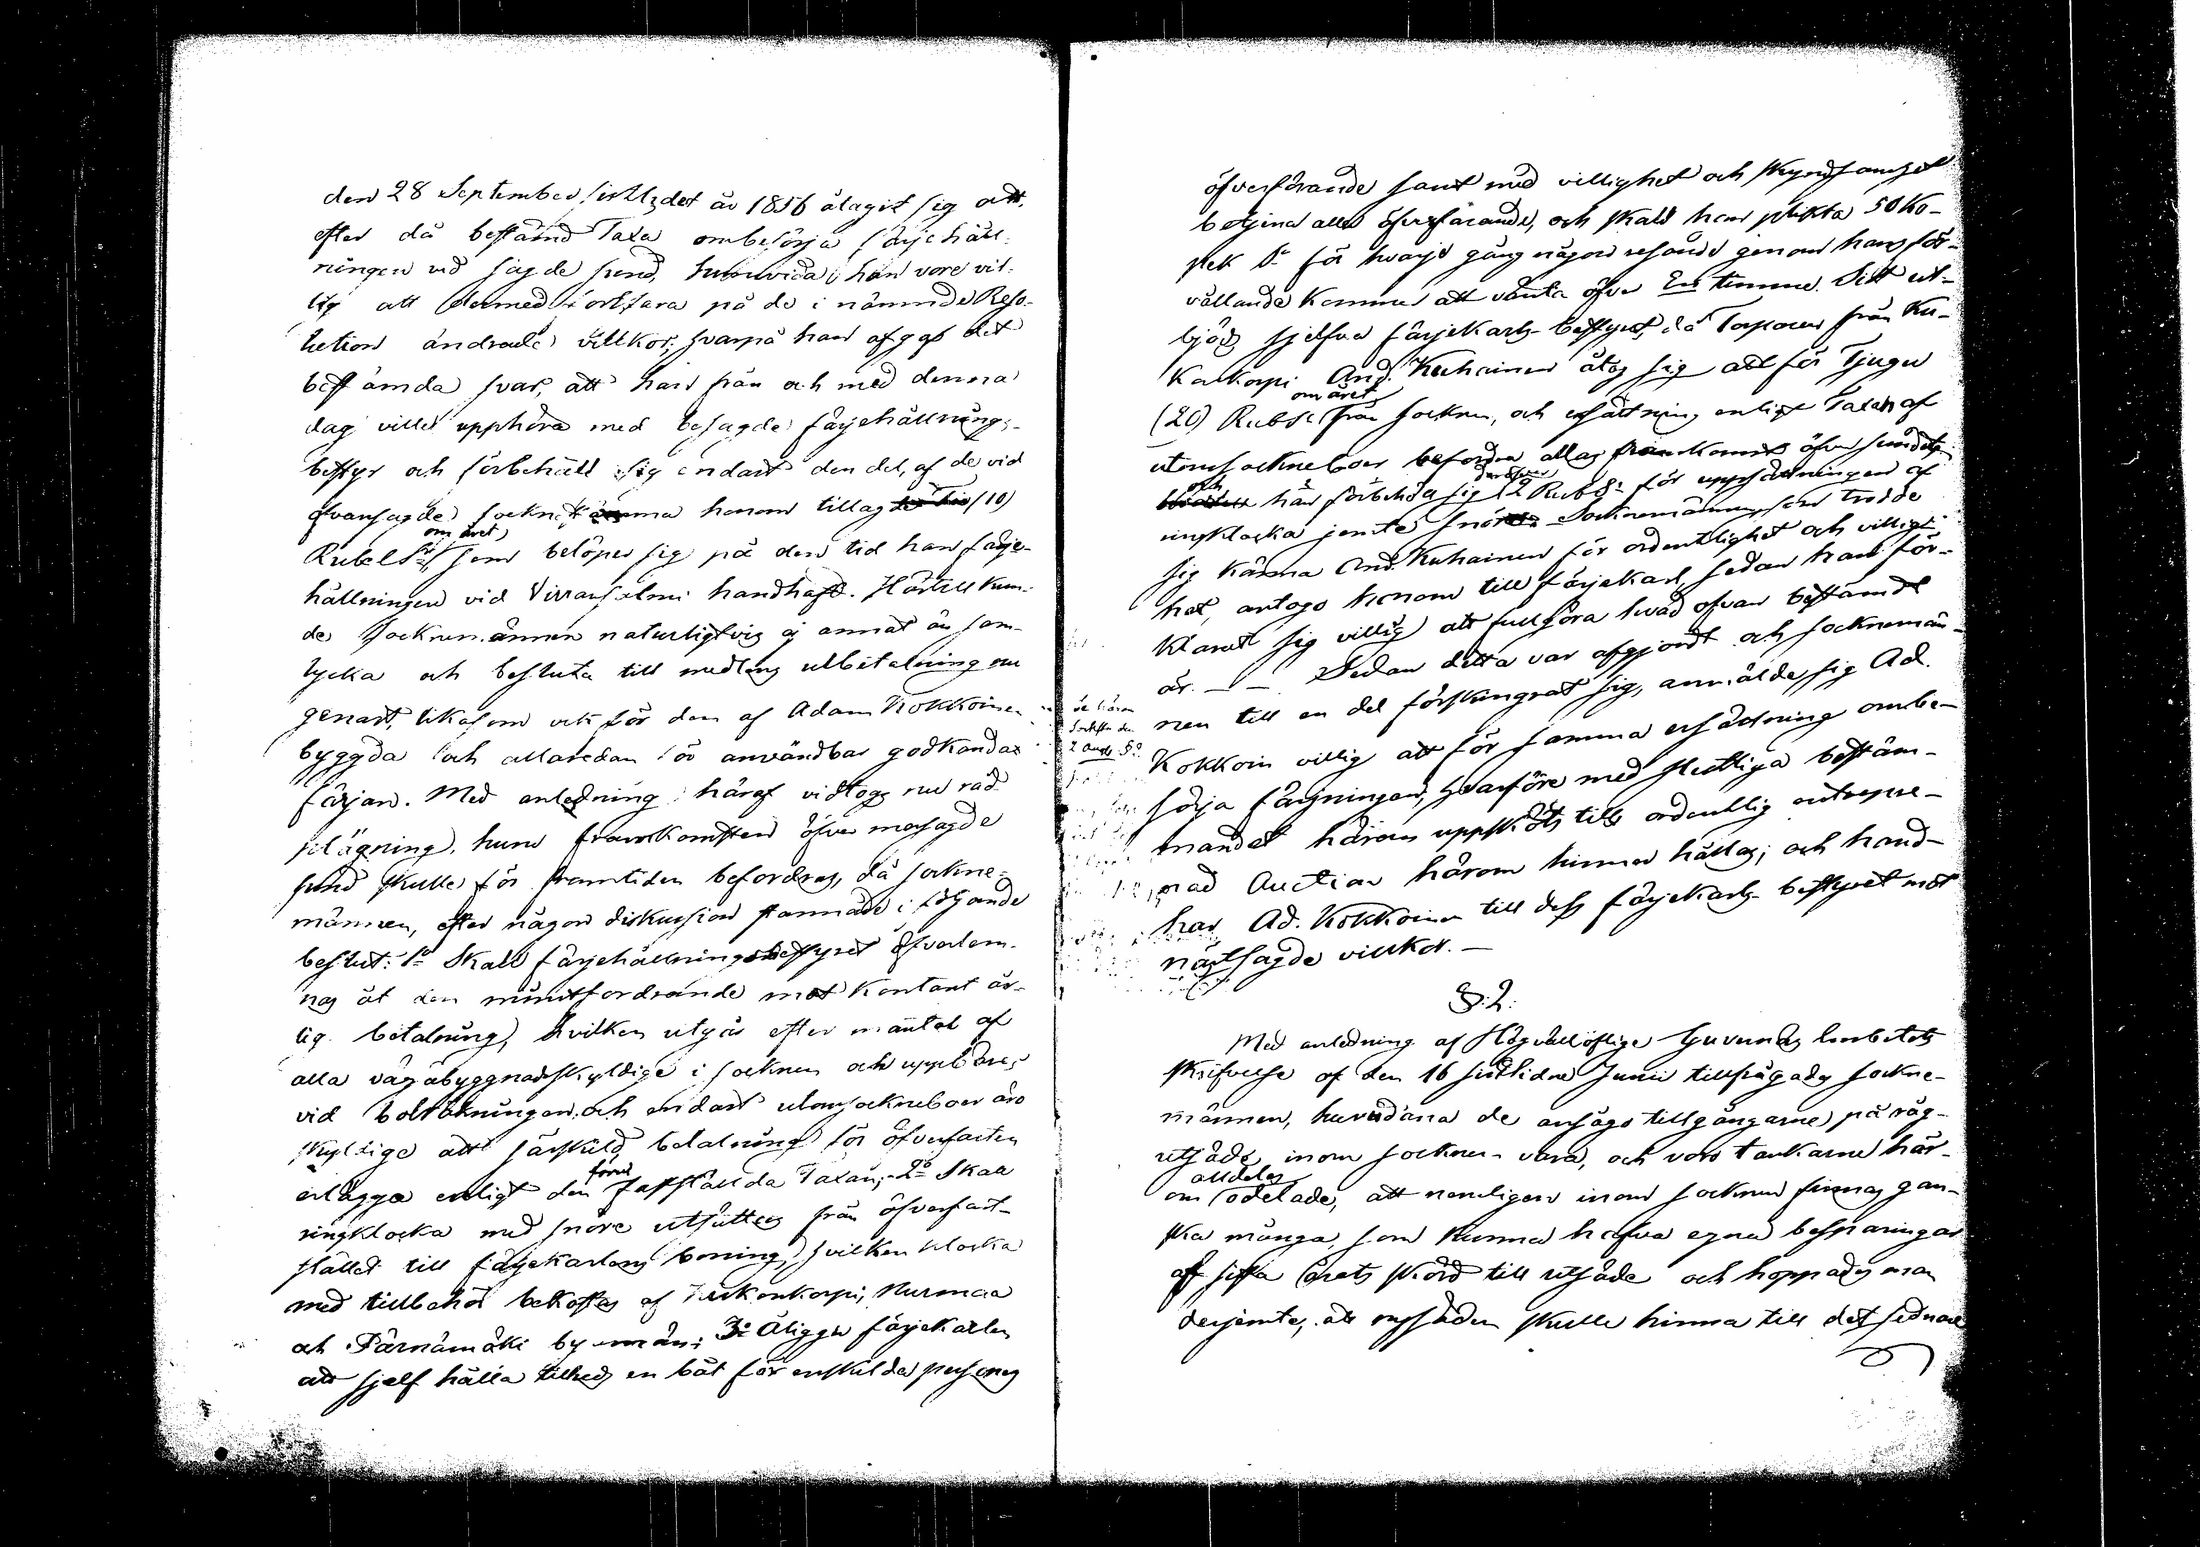 den 28 September sistledet år 1856 åtagit sig att,
efter då bestämd Taxa ombesörja färjehåll-
ningen vid sagde sund, huruvida han vore vil-
lig att dermed fortfara på de i nämnde Reso-
lution ändrade villkor; hvarpå han afgaf det
bestämda svar, att han från och med denna
dag ville upphöra med besagde färjehållnings-
bestyr och förbehåll sig endast den del, af de vid
ofvansagde socknestämma honom tillagde tio (10)
om året
Rubel Sr, som belöper sig på den tid han färje-
hållningen vid Virransalmi handhaft. Härtill kun-
de Sockenmännen naturligtvis ej annat än sam-
tycka och besluta till medlens utbetalning nu
genast, likasom ock för den af Adam Kokkoinen
byggda och allaredan för användbar godkända
färjan. Med anledning häraf vidtogs nu råd-
plägning, huru framkomsten öfver mersagde
sund skulle för framtiden befordras, då sockne-
männen, efter någon diskussion stannade i följande
beslut: 1o Skall färjehållningsbestyret öfverlem-
nas åt den minstfordrande mot kontant år-
lig betalning, hvilken utgår efter mantal af
alla vägabyggnadsskyldige i socknen och uppbäres
vid boltäkningen och endast utomsockneboer äro
skyldige att särskild betalning för öfverfarten
förut
erlägga enligt den fastställda Taxan; 2o Skall
ringklocka med snöre utsättas från öfverfart-
stället till färjekarlens boning, hvilken klocka
med tillbehör bekostas af Kuikonkorpi, Nurmaa
och Pärnämäki by män; 3o Åligger färjekarlen
att sjelf hålla tillreds en båt för enskilda persons
öfverförande samt med villighet och skyndsamhet
betjena alla öfverfarande, och skall han plikta 50 Ko-
pek Sr för hvarje gång någon resande genom hans för-
vållande kommer att vänta öfver En timme. Sist ut-
bjöds sjelfva färjekarls-bestyret, då Torparen från Ku-
konkorpi And. Kuhainen åtog sig att för Tjugu
om året
(20) Rubel Sr från Socknen, och ersättning enligt Taxan af
utomsockneboer befordra allas framkomst öfver sundet
och dessutom
han förbehöll sig 2 Rub Sr för uppsättningen af
ringklocka jemte snöre. Sockenmännen, som trodde
sig känna And. Kuhainen för ordentlighet och villig-
het, antogo honom till färjekarl, sedan han för-
klarat sig villig att fullgöra hvad ofvan bestämdt
är. — — Sedan detta var afgjordt och sockenmän-
nen till en del förskingrat sig, anmälde sig Ad.
Kokkoin villig att för samma ersättning ombe-
sörja färjningen, hvarföre med slutliga bestäm-
mandet härom uppsköts till ordentlig entrepre-
nad Auction härom hinner hållas; och hand-
har Ad. Kokkoinen till dess färjekarls-bestyret mot
nästsagde villkor. —
§. 2.
Med anledning af Högvällöflige Guvernörs Embetets
skrifvelse af den 16 sistlidne Junii tillfrågades sockne-
männen, hurudana de ansågo tillgångarne på råg-
utsäde inom socknen vara, och voro tankarne här-
alldeles
om odelade, att nemligen inom socknen finnas gan-
ska många, som kunna hafva egna besparingar
af sista årets skörd till utsäde och hoppades man
derjemte, att nysäden skulle hinna till det sednare